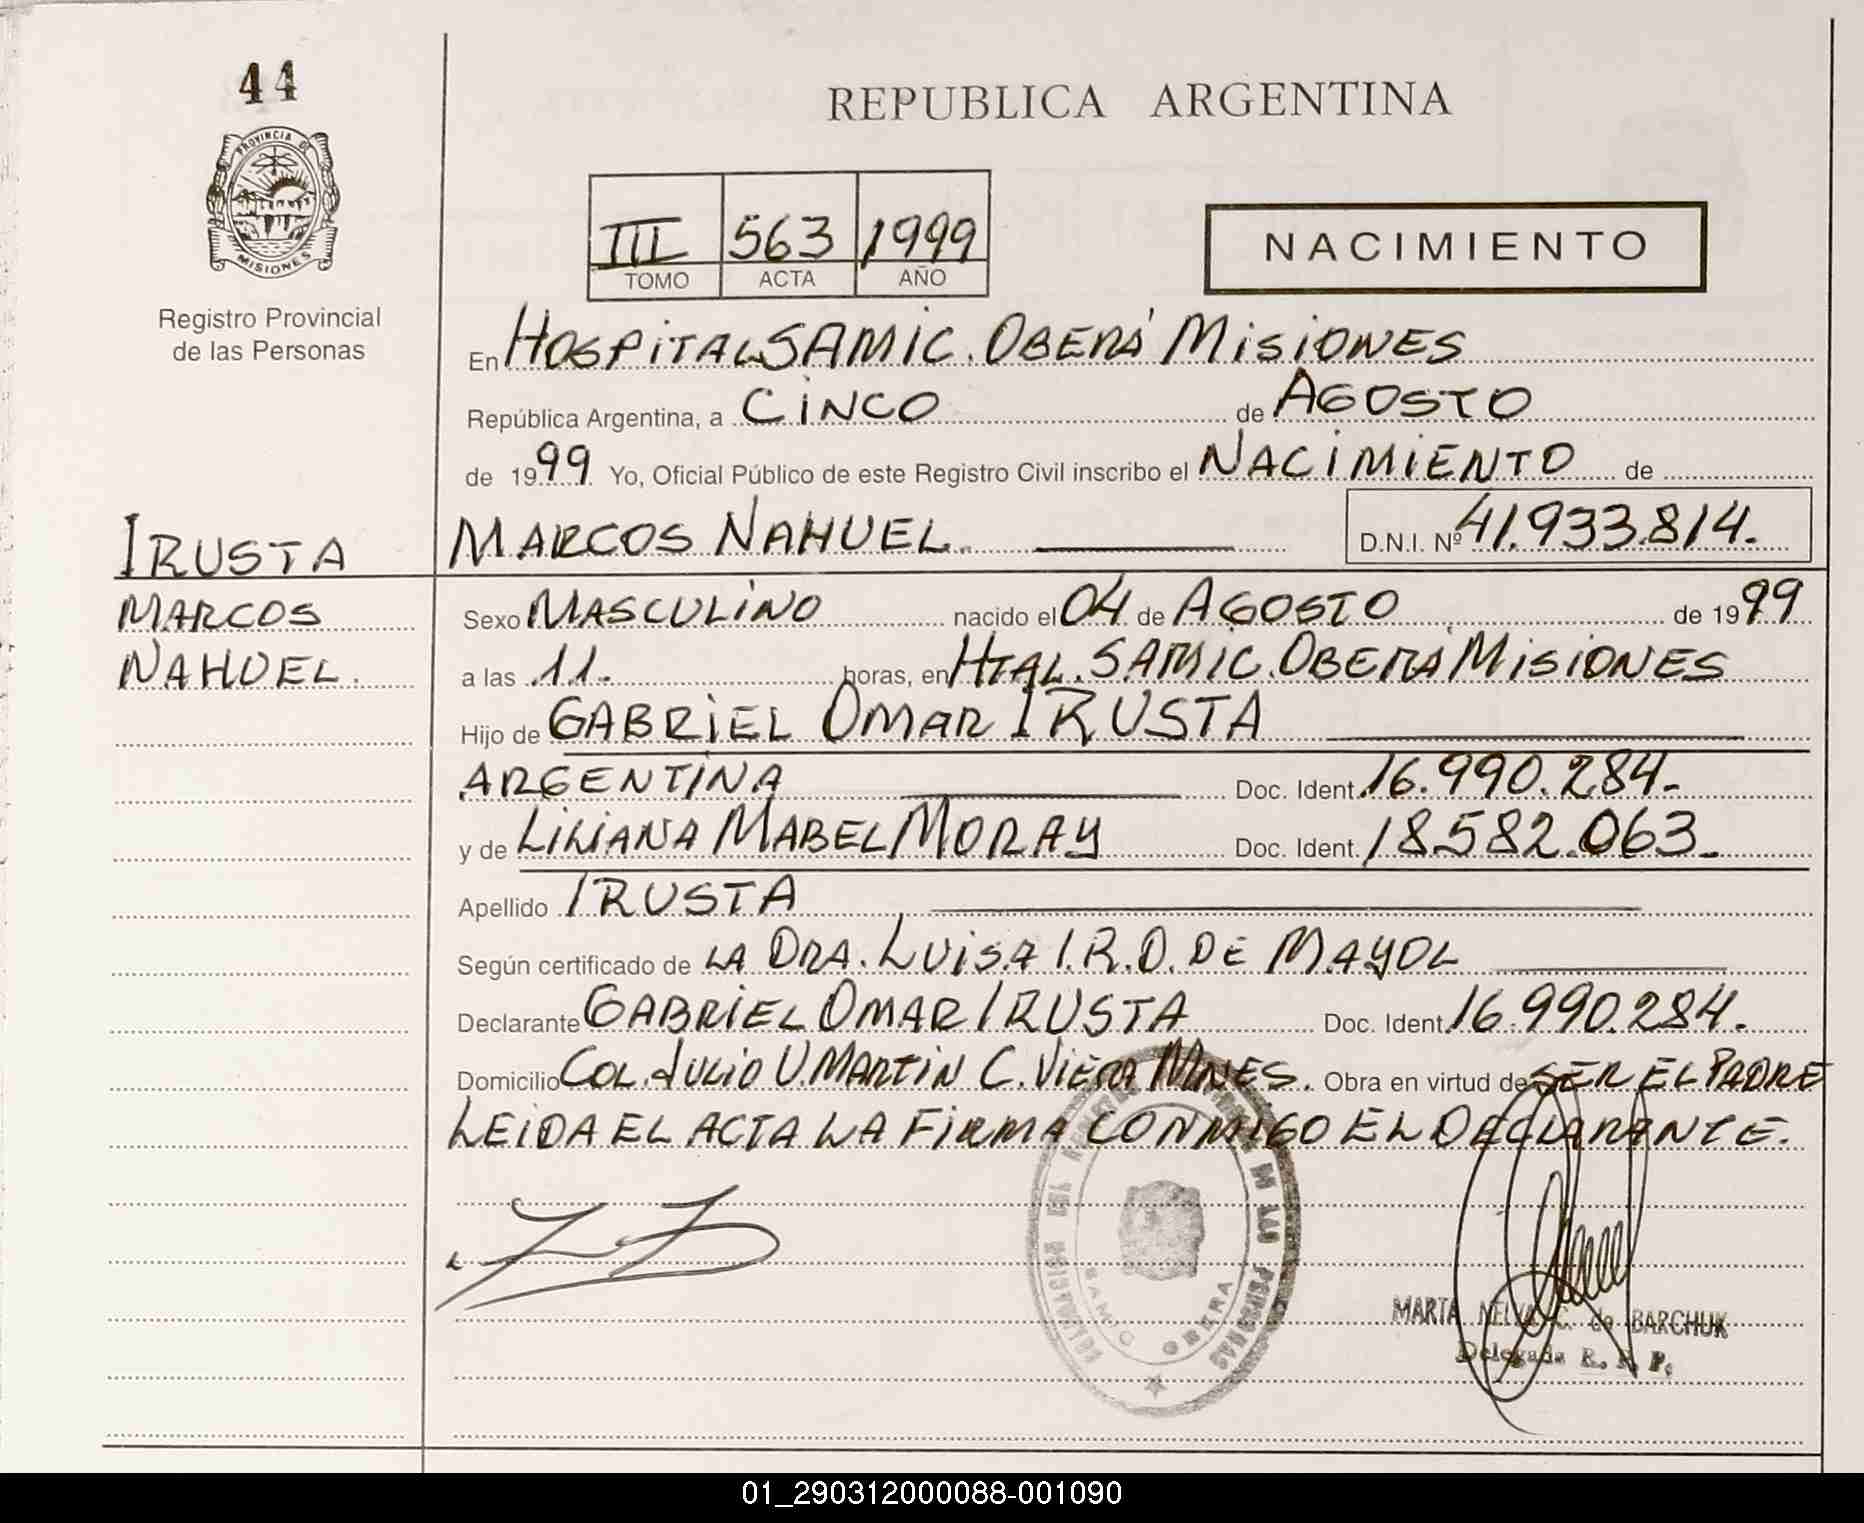 44
PROVINCIA DE
MISIONES
Registro Provincial
de las Personas
REPUBLICA ARGENTINA
III 563 1999
TOMO ACTA AÑO
NACIMIENTO
En HOSPITAL SAMIC. OBERÁ MISIONES
República Argentina, a CINCO de AGOSTO
de 1999 Yo, Oficial Público de este Registro Civil inscribo el NACIMIENTO de
IRUSTA MARCOS NAHUEL. D.N.I. Nº 41.933.814.
MARCOS
NAHUEL.
Sexo MASCULINO nacido el 04 de AGOSTO de 1999
a las 11. horas, en HTAL. SAMIC. OBERÁ MISIONES
Hijo de GABRIEL OMAR IRUSTA
ARGENTINA Doc. Ident. 16.990.284.
y de LILIANA MABEL MORAY Doc. Ident. 18.582.063.
Apellido IRUSTA
Según certificado de LA DRA. LUISA I.R.D. DE MAYOL
Declarante GABRIEL OMAR IRUSTA Doc. Ident. 16.990.284.
Domicilio COL. JULIO U. MARTIN C. VIERA MNES. Obra en virtud de SER EL PADRE
LEIDA EL ACTA LA FIRMA CONMIGO EL DECLARANTE.
DE LAS PERSONAS
OBERA
MARTA NELVA C. de BARCHUK
Delegada R. P. P.
01_290312000088-001090